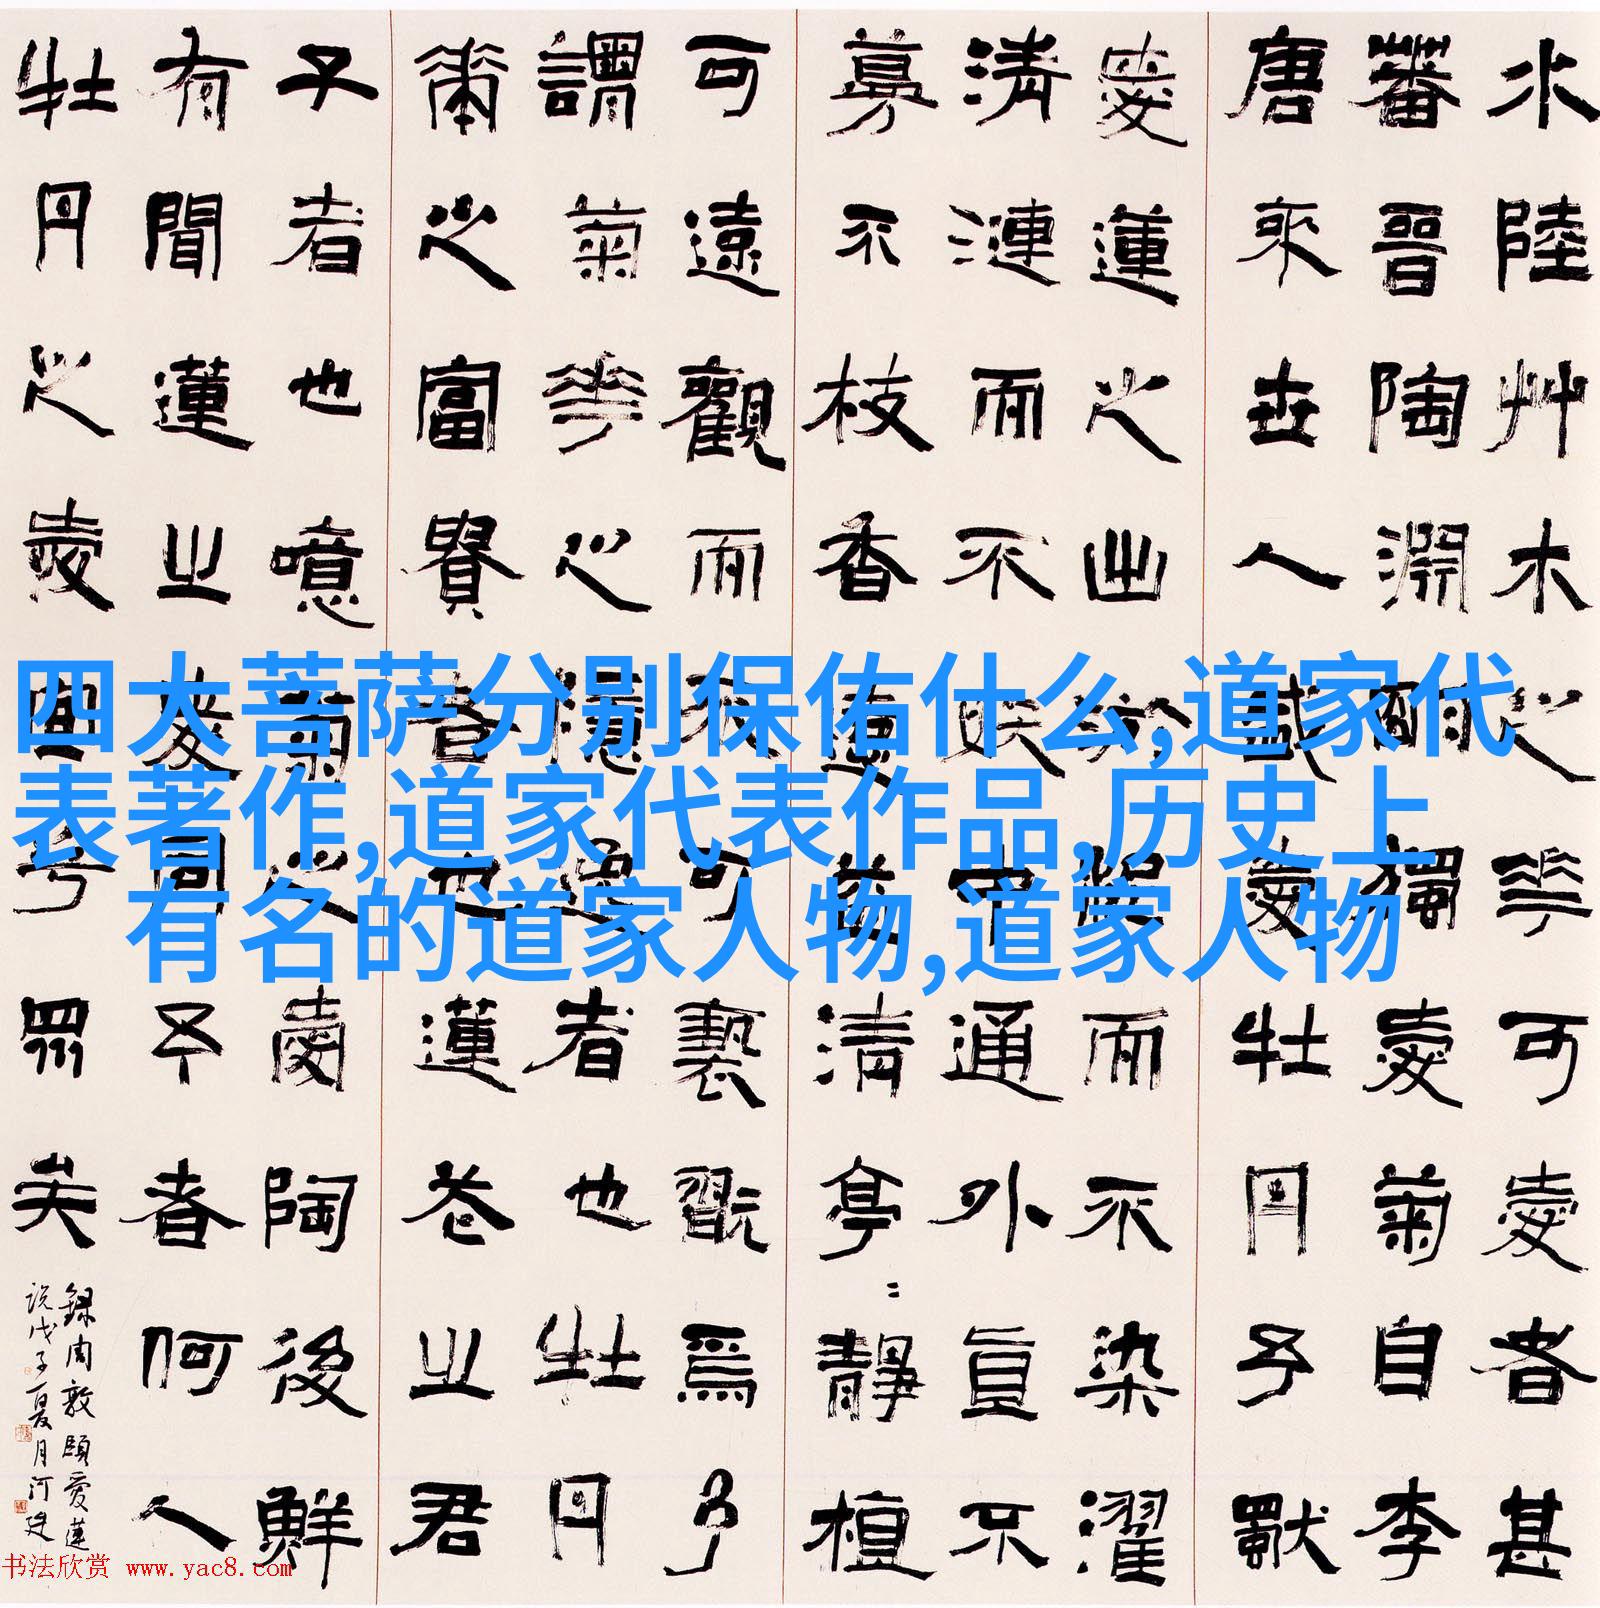 水陸艸木之華可愛者甚
蕃晉陶淵明獨愛菊自李
唐來世人盛愛牡丹予獨
愛蓮之出淤泥而不染濯
清漣而不妖中通外直不
蔓不枝香遠益清亭=靜植
可遠觀而不可褻翫焉予
謂菊華之隱逸者也牡丹
華之富貴者也蓮華之君
子者也噫菊之愛陶後鮮
有聞蓮之愛同予者何人
牡丹之愛宜乎眾矣
錄周敦頤愛蓮
說戊子夏月河建
四大菩萨分别保佑什么,道家代
表著作,道家代表作品,历史上
有名的道家人物,道家人物
书法欣赏 www.yac8.com